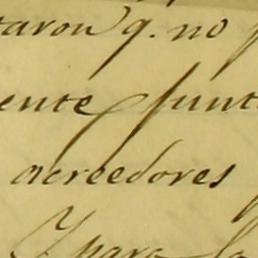 taron q. no
ente Junt
acreedores
Y para la